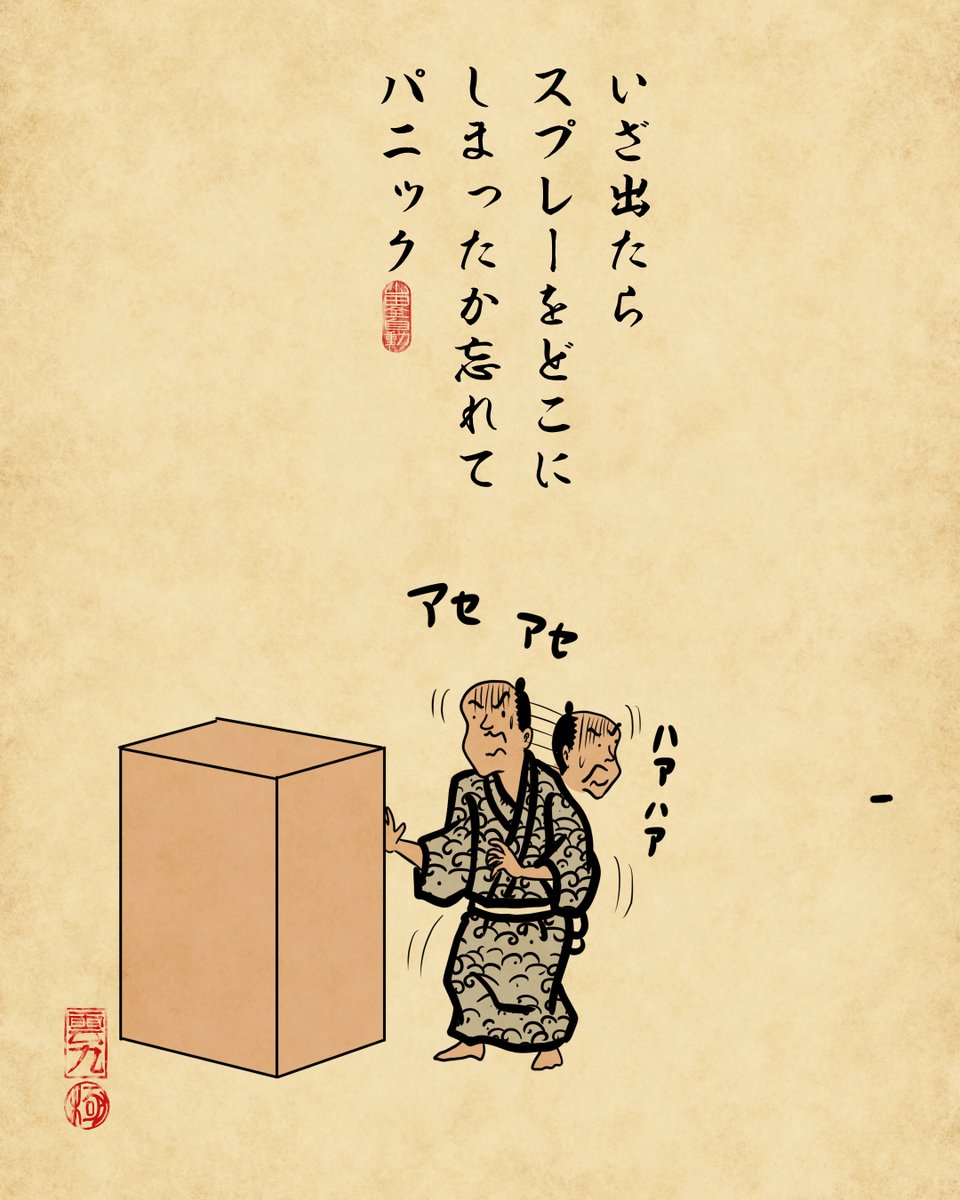 いざ出たら
スプレーをどこに
しまったか忘れて
パニック
アセ
アセ
ハア
ハア
雲九